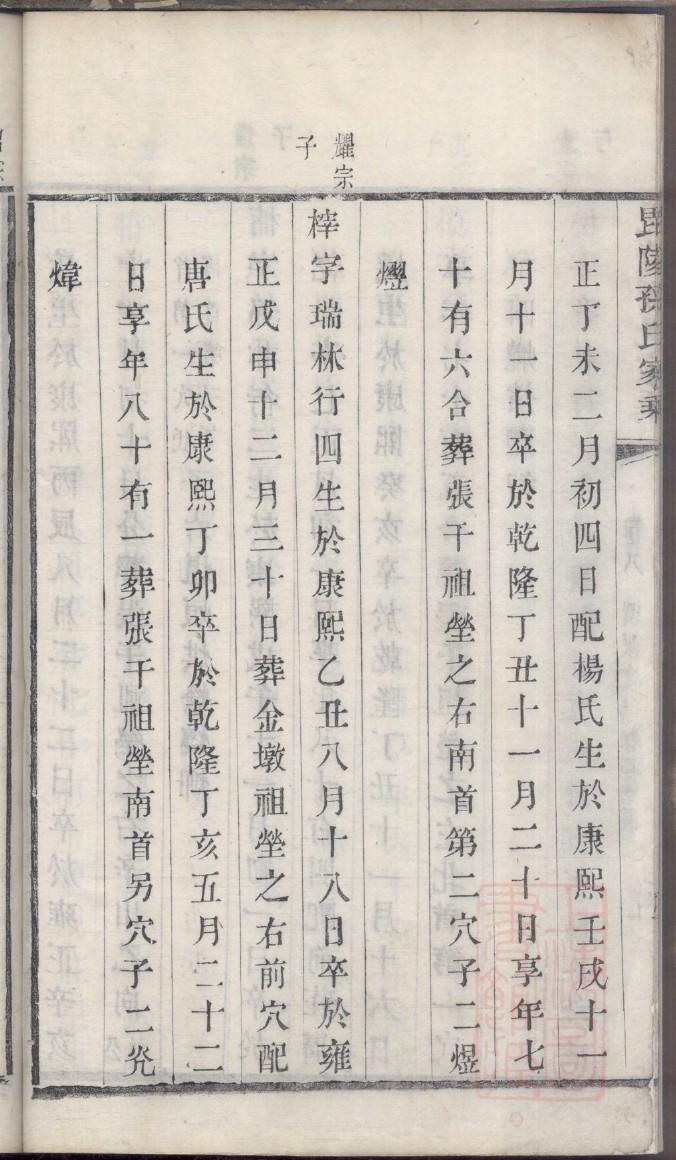 毘陵孫氏家乘
正丁未二月初四日配楊氏生於康熙壬戌十一
月十一日卒於乾隆丁丑十一月二十日享年七
十有六合葬張干祖塋之右南首第二穴子二煜
耀宗
子
梓字瑞林行四生於康熙乙丑八月十八日卒於雍
正戊申十二月三十日葬金墩祖塋之右前穴配
唐氏生於康熙丁卯卒於乾隆丁亥五月二十二
日享年八十有一葬張干祖塋南首另穴子二炗
煒